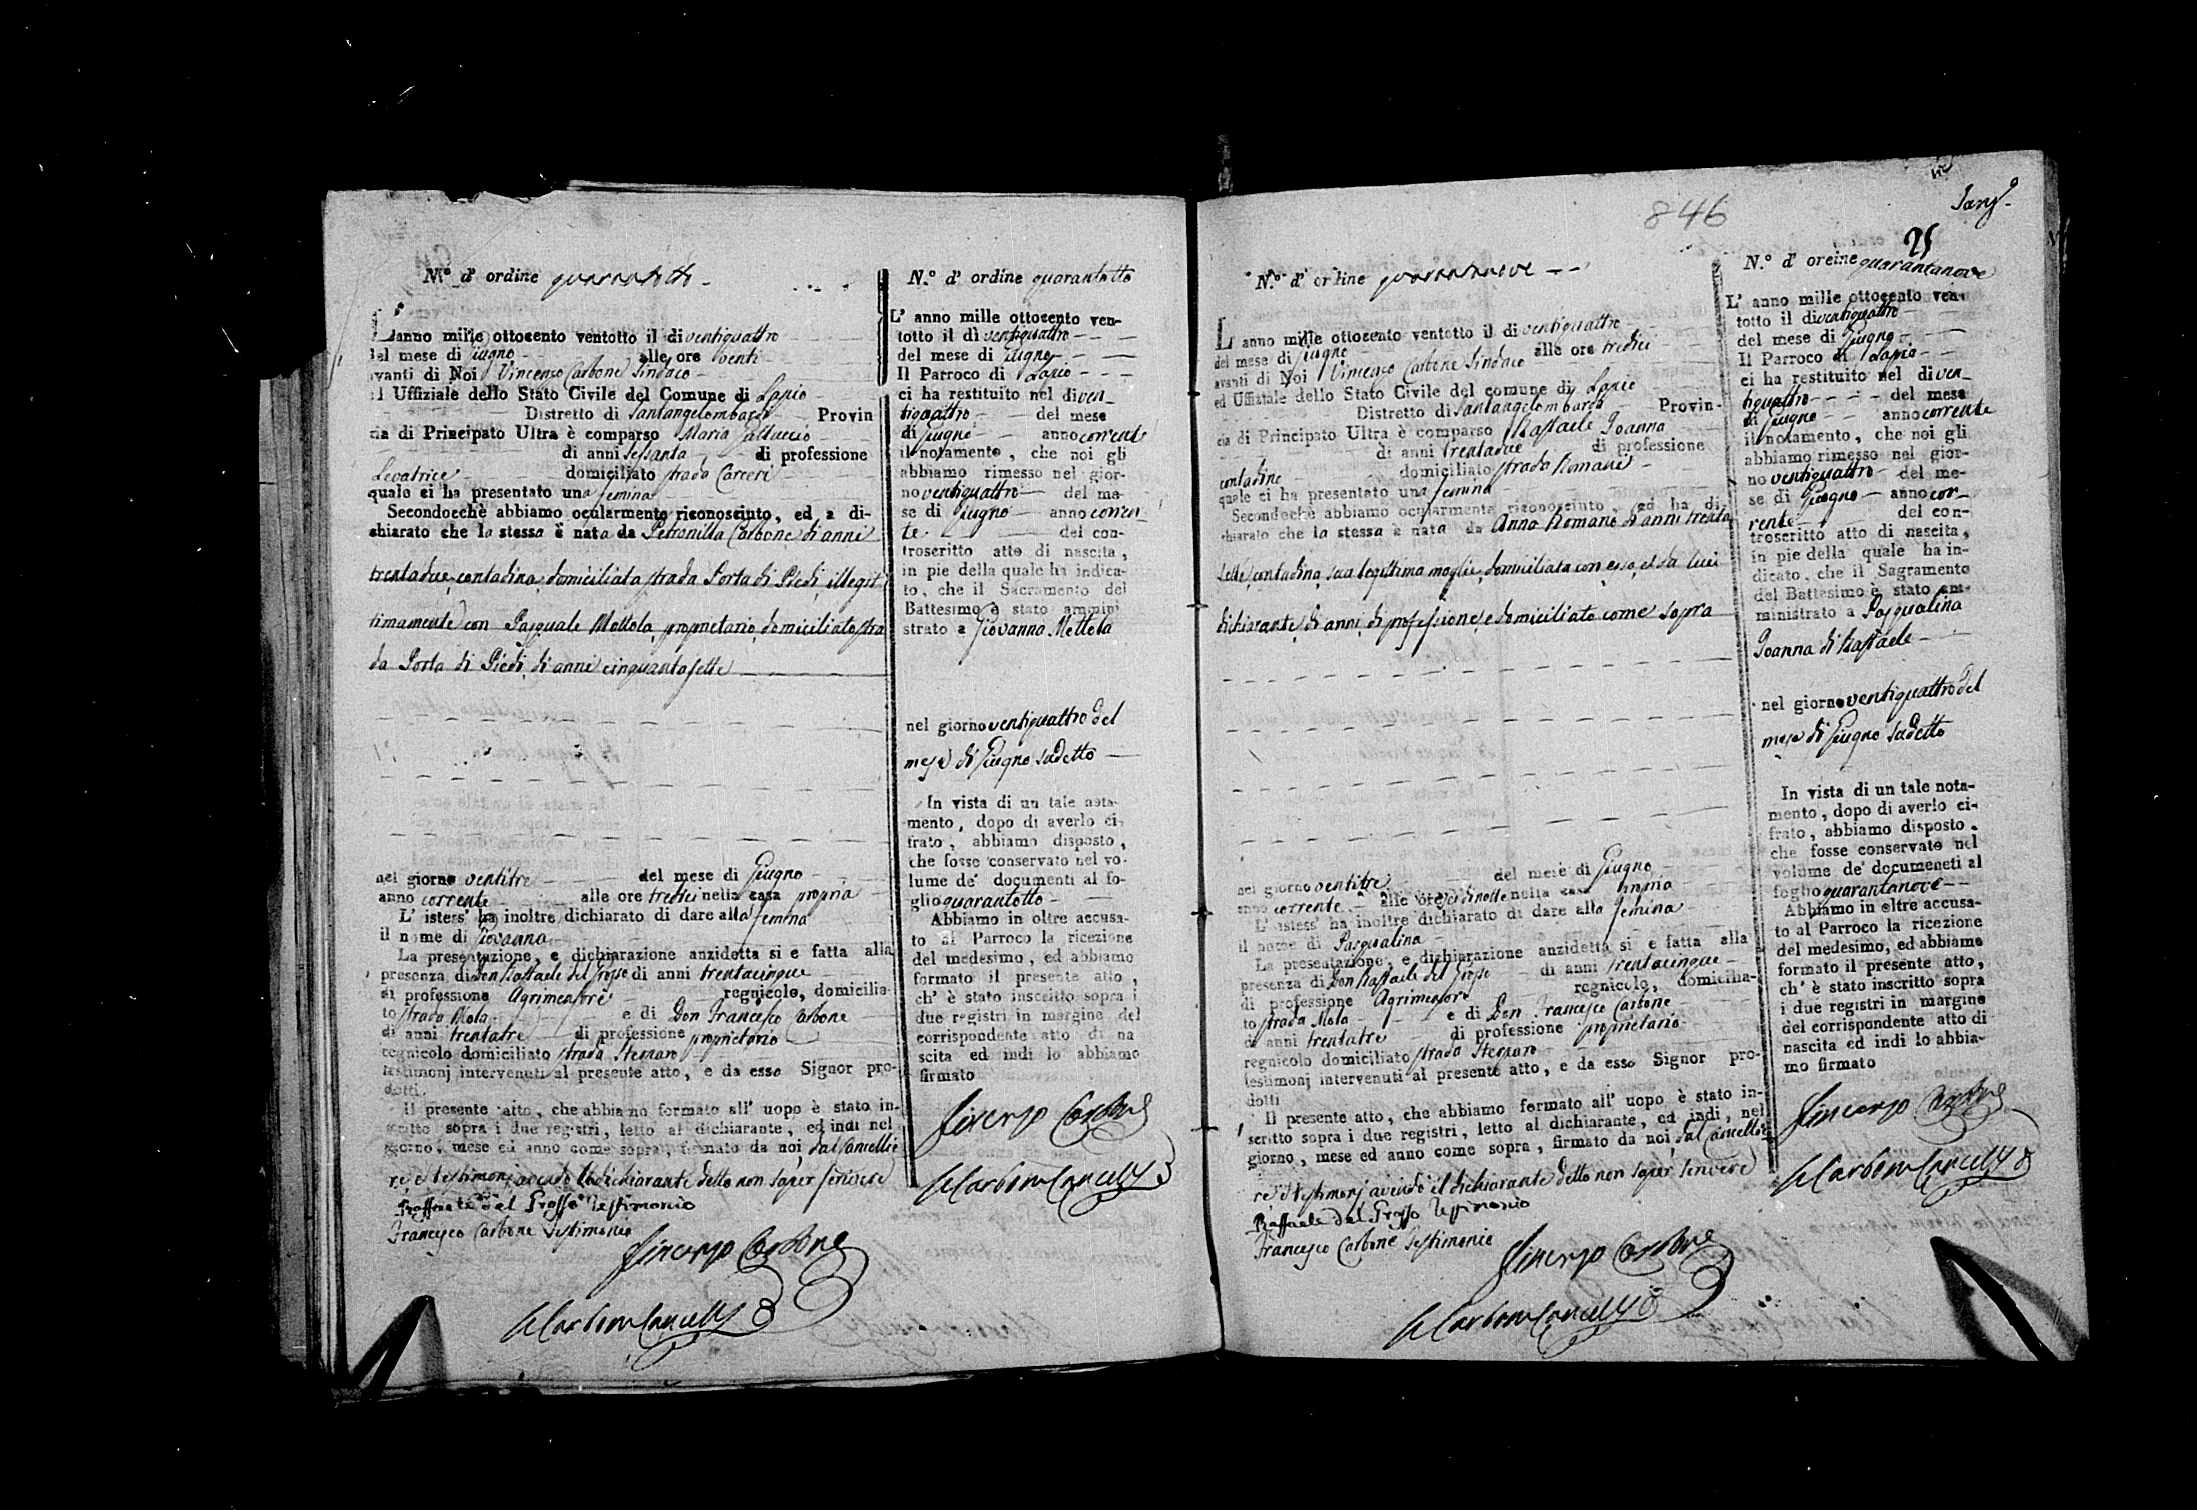 N.° d' ordine quarantotto
L'anno mille ottocento ventotto il di ventiquattro
del mese di Giugno alle ore venti
avanti di Noi Vincenzo Carbone Sindaco
ed Uffiziale dello Stato Civile del Comune di Lapio
Distretto di Santangelombardi Provin
cia di Principato Ultra è comparso Maria
di anni sessanta di professione
Levatrice domiciliato strada Carceri
quale ci ha presentato una femina
Secondocchè abbiamo ocularmento riconosciuto, ed a di-
chiarato che la stessa è nata da Petronilla Carbone di anni
trentadue, contadina, domiciliata strada Porta di Piedi, illegit
timamente con Pasquale Mottola, proprietario, domiciliato stra
da Porta di Piedi, di anni cinquantasette
nel giorno ventitre del mese di Giugno
anno corrente alle ore tredici nella casa propria
L' istess' ha inoltre dichiarato di dare alla femina
il nome di Giovanna
La presentazione, e dichiarazione anzidetta si e fatta alla
presenza di Don Raffaele del Grosso di anni trentacinque
di professione Agrimensore regnicolo, domicilia-
to strada Mola e di Don Francesco Carbone
di anni trentatre di professione proprietario
regnicolo domiciliato strada
testimonj intervenuti al presente atto, e da esso Signor pro-
dotti.
Il presente atto, che abbiamo formato all' uopo è stato in-
scritto sopra i due registri, letto al dichiarante, ed indi nel
giorno, mese ed anno come sopra, firmato da noi, dal Cancellie
re, e testimonj, avendo la dichiarante detto non saper scrivere
Raffaele del Grosso Testimonio
Francesco Carbone Testimonio
Vincenzo Carbone
Carbone Cancell
N.° d' ordine quarantotto
L' anno mille ottocento ven-
totto il dì ventiquattro
del mese di Giugno
Il Parroco di Lapio
ci ha restituito nel di ven-
tiquattro del mese
di Giugno anno corrente
il notamento, che noi gli
abbiamo rimesso nel gior-
no ventiquattro del me-
se di Giugno anno corren-
te del con-
troscritto atto di nascita,
in pie della quale ha indica-
to, che il Sacramento del
Battesimo è stato ammini
strato a Giovanna Mottola
nel giorno ventiquattro del
mese di Giugno sudetto
In vista di un tale nota-
mento, dopo di averlo ci-
frato, abbiamo disposto,
che fosse conservato nel vo-
lume de' documenti al fo-
glio quarantotto
Abbiamo in oltre accusa-
to al Parroco la ricezione
del medesimo, ed abbiamo
formato il presente atto,
ch' è stato inscritto sopra i
due registri in margine del
corrispondente atto di na
scita ed indi lo abbiamo
firmato
Vincenzo Carbone
Carbone Cancell
846
25
N.° d' ordine quarantanove
L'anno mille ottocento ventotto il di ventiquattro
del mese di Giugno alle ore tredici
avanti di Noi Vincenzo Carbone Sindaco
ed Uffiziale dello Stato Civile del comune di Lapio
Distretto di Santangelombardi Provin-
cia di Principato Ultra è comparso Raffaele Ioanna
di anni trentadue di professione
contadino domiciliato strada Romani
quale ci ha presentato una femina
Secondochè abbiamo ocularmente riconosciuto, ed ha di
chiarato che la stessa è nata da Anna Romano di anni trenta
sette, contadina, sua legittima moglie, domiciliata con esso, ed da lui
dichiarante, di anni, di professione, e domiciliato come sopra
nel giorno ventitre del mese di Giugno
anno corrente alle ore diecinove nella casa propria
L' istess' ha inoltre dichiarato di dare alla femina
il nome di Pasqualina
La presentazione, e dichiarazione anzidetta si e fatta alla
presenza di Don Raffaele del Grosso di anni trentacinque
di professione Agrimensore regnicolo, domicilia-
to strada Mola e di Don Francesco Carbone
di anni trentatre di professione proprietario
regnicolo domiciliato strada
testimonj intervenuti al presente atto, e da esso Signor pro-
dotti
Il presente atto, che abbiamo formato all' uopo è stato in-
scritto sopra i due registri, letto al dichiarante, ed indi, nel
giorno, mese ed anno come sopra, firmato da noi, dal Cancellie
re, e testimonj avendo il dichiarante detto non saper scrivere
Raffaele del Grosso Testimonio
Francesco Carbone Testimonio
Vincenzo Carbone
Carbone Cancell
N.° d' oreine quarantanove
L' anno mille ottocento ven-
totto il di ventiquattro
del mese di Giugno
Il Parroco di Lapio
ci ha restituito nel di ven-
tiquattro del mese
di Giugno anno corrente
il notamento, che noi gli
abbiamo rimesso nel gior-
no ventiquattro del me-
se di Giugno anno cor-
rente del con-
troscritto atto di nascita,
in pie della quale ha in-
dicato, che il Sagramento
del Battesimo è stato am-
ministrato a Pasqualina
Ioanna di Raffaele
nel giorno ventiquattro del
mese di Giugno sudetto
In vista di un tale nota-
mento, dopo di averlo ci-
frato, abbiamo disposto,
che fosse conservato nel
volume de' documeneti al
foglio quarantanove
Abbiamo in oltre accusa-
to al Parroco la ricezione
del medesimo, ed abbiamo
formato il presente atto,
ch' è stato inscritto sopra
i due registri in margine
del corrispondente atto di
nascita ed indi lo abbia-
mo firmato
Vincenzo Carbone
Carbone Cancell